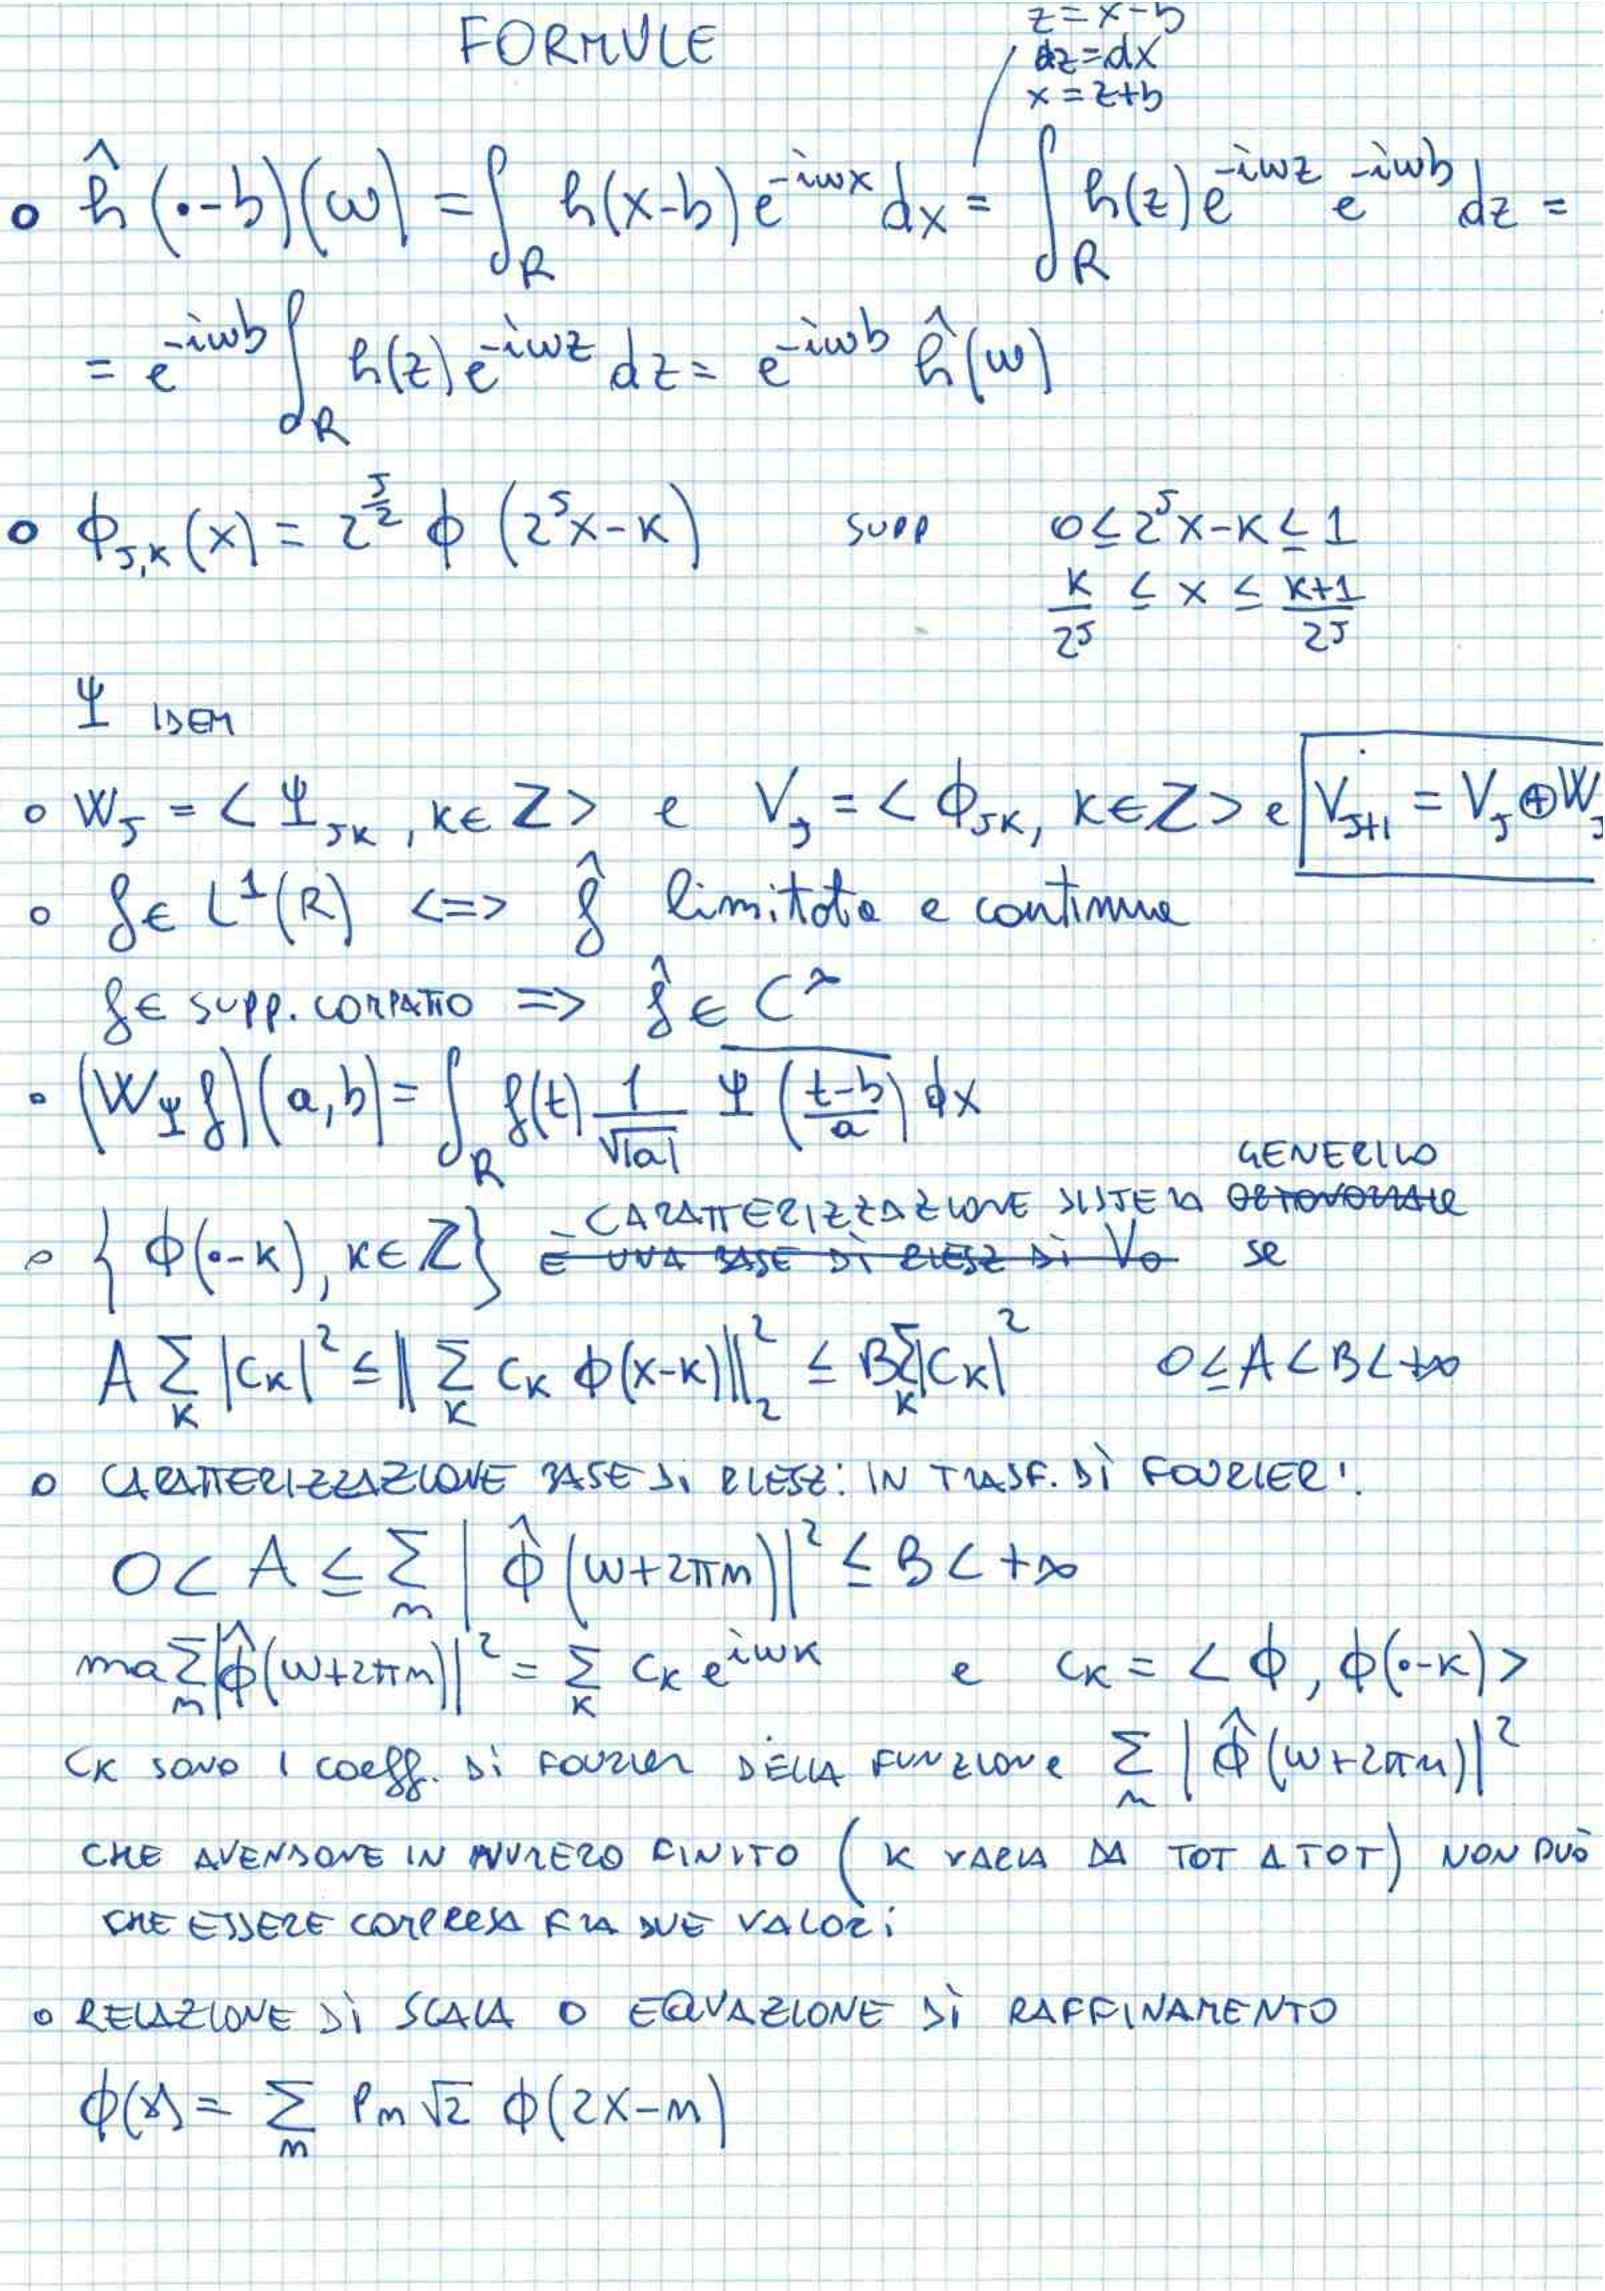 FORMULE
z = x-b
dz = dx
x = z+b
∘ ĥ(•-b)(ω) = ∫_R h(x-b) e^{-iωx} dx = ∫_R h(z) e^{-iωz} e^{-iωb} dz =
= e^{-iωb} ∫_R h(z) e^{-iωz} dz = e^{-iωb} ĥ(ω)
∘ ϕ_{J,K}(x) = 2^{J/2} ϕ(2^J x-K) SUPP 0 ≤ 2^J x-K ≤ 1
K/2^J ≤ x ≤ (K+1)/2^J
Ψ IDEM
∘ W_J = < Ψ_{JK}, K∈Z > e V_J = < ϕ_{JK}, K∈Z > e V_{J+1} = V_J ⊕ W_J
∘ f∈L^1(R) <=> f̂ limitata e continua
f∈ SUPP. COMPATTO => f̂ ∈ C^∞
∘ (W_Ψ f)(a,b) = ∫_R f(t) 1/√|a| \overline{Ψ((t-b)/a)} dx
GENERICO
CARATTERIZZAZIONE SISTEMA ORTONORMALE
∘ {ϕ(•-K), K∈Z} È UNA BASE DI RIESZ DI V_0 se
A Σ_K |C_K|^2 ≤ ‖Σ_K C_K ϕ(x-K)‖_2^2 ≤ B Σ_K |C_K|^2 0 ≤ A < B < +∞
∘ CARATTERIZZAZIONE BASE DI RIESZ: IN TRASF. DÌ FOURIER:
0 < A ≤ Σ_n |ϕ̂(ω+2πn)|^2 ≤ B < +∞
ma Σ_n |ϕ̂(ω+2πn)|^2 = Σ_K C_K e^{iωK} e C_K = < ϕ, ϕ(•-K) >
C_K SONO I coeff. Dì FOURIER DELLA FUNZIONE Σ_n |ϕ̂(ω+2πn)|^2
CHE AVENDONE IN NUMERO FINITO (K VARIA DA TOT A TOT) NON PUÒ
CHE ESSERE COMPRESA FRA DUE VALORI
∘ RELAZIONE DÌ SCALA O EQUAZIONE DÌ RAFFINAMENTO
ϕ(x) = Σ_n P_n √2 ϕ(2x-n)